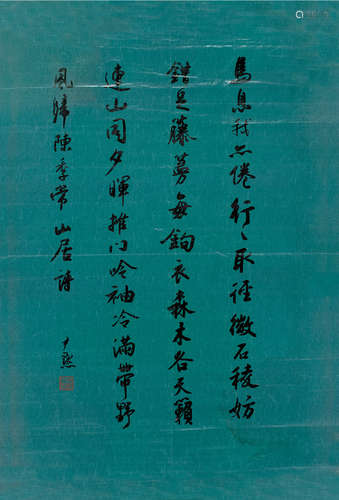 馬息我亦倦行〻取徑微石稜妨
錯足藤蔓每鉤衣森木谷天籟
連山閃夕暉推門吟袖冷滿帶野
風歸陳季常山居詩
尹默